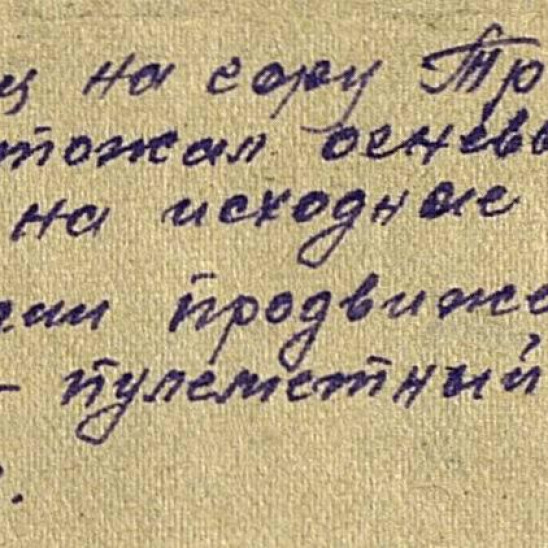 ц на гору Тр
тожал огневы
на исходные
ции продвиже
- пулеметный